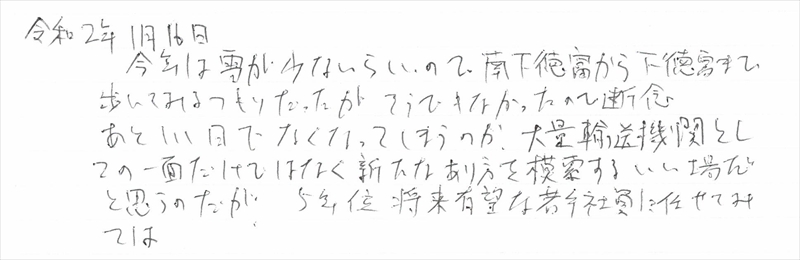 令和2年1月16日
今年は雪が少ないらしいので、南下徳富から下徳富まで
歩いてみるつもりだったが そうできなかったので断念
あといい日でなくなってしまうのか、大量輸送機関とし
ての一面だけではなく新たなあり方を模索するいい場だ
と思うのだが 5年位 将来有望な若手社員に任せてみ
ては